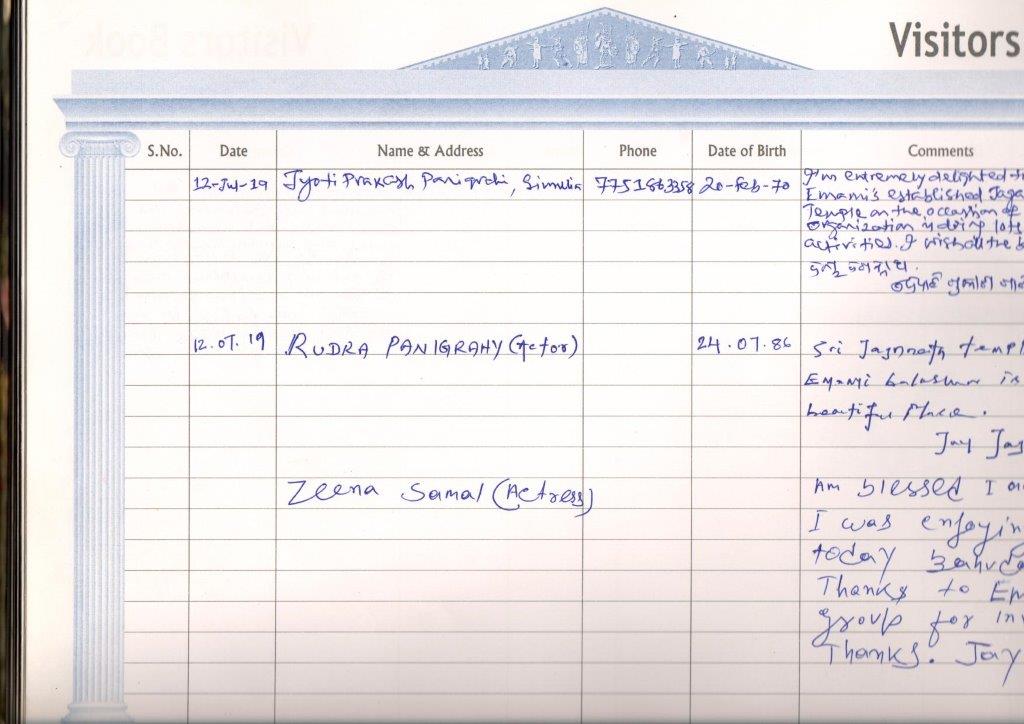 Visitors
S.No. Date Name & Address Phone Date of Birth Comments
12-Jul-19 Jyoti Prakash Panigrahi, Simulia 7751863358 20-Feb-70 I'm extremely delighted
Emami's established
Temple on the occassion of
organization is doing lots
activities. I wish the
12.07.19 RUDRA PANIGRAHY (Actor) 24.07.86 Sri Jagnnath
Emami balashwr is
beautiful Place.
Jay
Zeena Samal (Actress) Am blessed I
I was enjoying
today
Thanks to
group for
Thanks. Jay